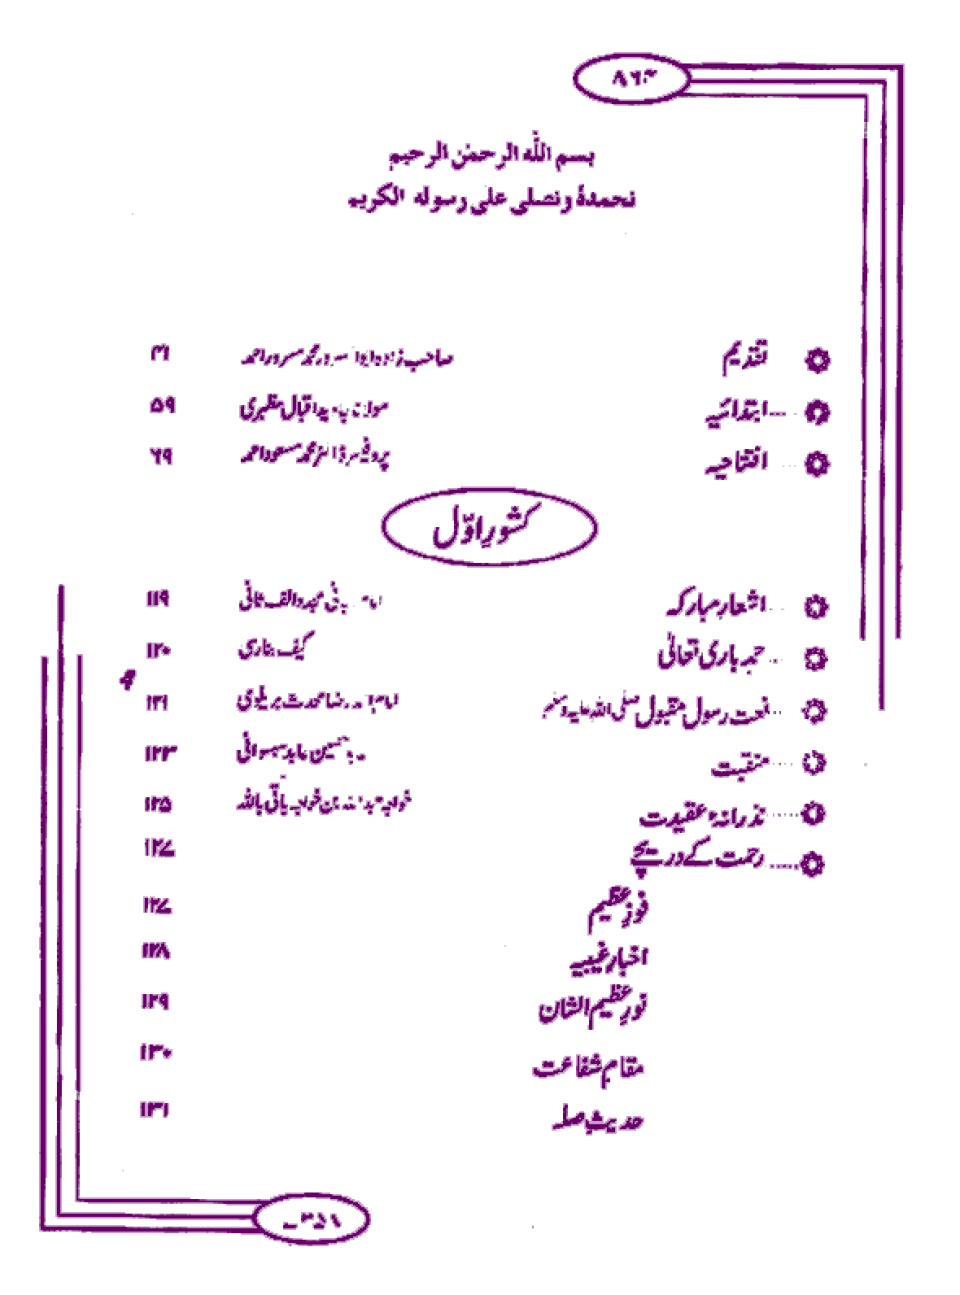 بسم اللّٰه الرحمٰن الرحیم
نحمدہٗ ونصلی علی رسوله الکریم
تقدیم صاحبزادہ ابوالسرور محمد مسرور احمد ۴۱
ابتدائیہ مولانا جاوید اقبال مظہری ۵۹
افتتاحیہ پروفیسر ڈاکٹر محمد مسعود احمد ۶۹
کشورِ اوّل
اشعارِ مبارکہ امام ربانی مجدد الف ثانی ۱۱۹
حمدِ باری تعالیٰ کیف بناری ۱۲۰
نعت رسول مقبول صلی اللہ علیہ وسلم امام احمد رضا محدث بریلوی ۱۲۱
منقبت حسین عابد سہسوانی ۱۲۳
نذرانۂ عقیدت خواجہ عبداللہ بن خواجہ باقی باللہ ۱۲۵
رحمت کے دریچے ۱۲۷
فوزِ عظیم ۱۲۷
اخبارِ غیبیہ ۱۲۸
نورِ عظیم الشان ۱۲۹
مقامِ شفاعت ۱۳۰
حدیثِ صلہ ۱۳۱